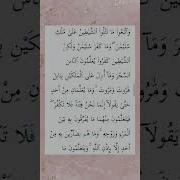 وَٱتَّبَعُوا۟ مَا تَتْلُوا۟ ٱلشَّيَٰطِينُ عَلَىٰ مُلْكِ
سُلَيْمَٰنَ ۖ وَمَا كَفَرَ سُلَيْمَٰنُ وَلَٰكِنَّ
ٱلشَّيَٰطِينَ كَفَرُوا۟ يُعَلِّمُونَ ٱلنَّاسَ
ٱلسِّحْرَ وَمَآ أُنزِلَ عَلَى ٱلْمَلَكَيْنِ بِبَابِلَ
هَٰرُوتَ وَمَٰرُوتَ ۚ وَمَا يُعَلِّمَانِ مِنْ أَحَدٍ
حَتَّىٰ يَقُولَآ إِنَّمَا نَحْنُ فِتْنَةٌ فَلَا تَكْفُرْ ۖ
فَيَتَعَلَّمُونَ مِنْهُمَا مَا يُفَرِّقُونَ بِهِۦ بَيْنَ
ٱلْمَرْءِ وَزَوْجِهِۦ ۚ وَمَا هُم بِضَآرِّينَ بِهِۦ مِنْ
أَحَدٍ إِلَّا بِإِذْنِ ٱللَّهِ ۚ وَيَتَعَلَّمُونَ مَا